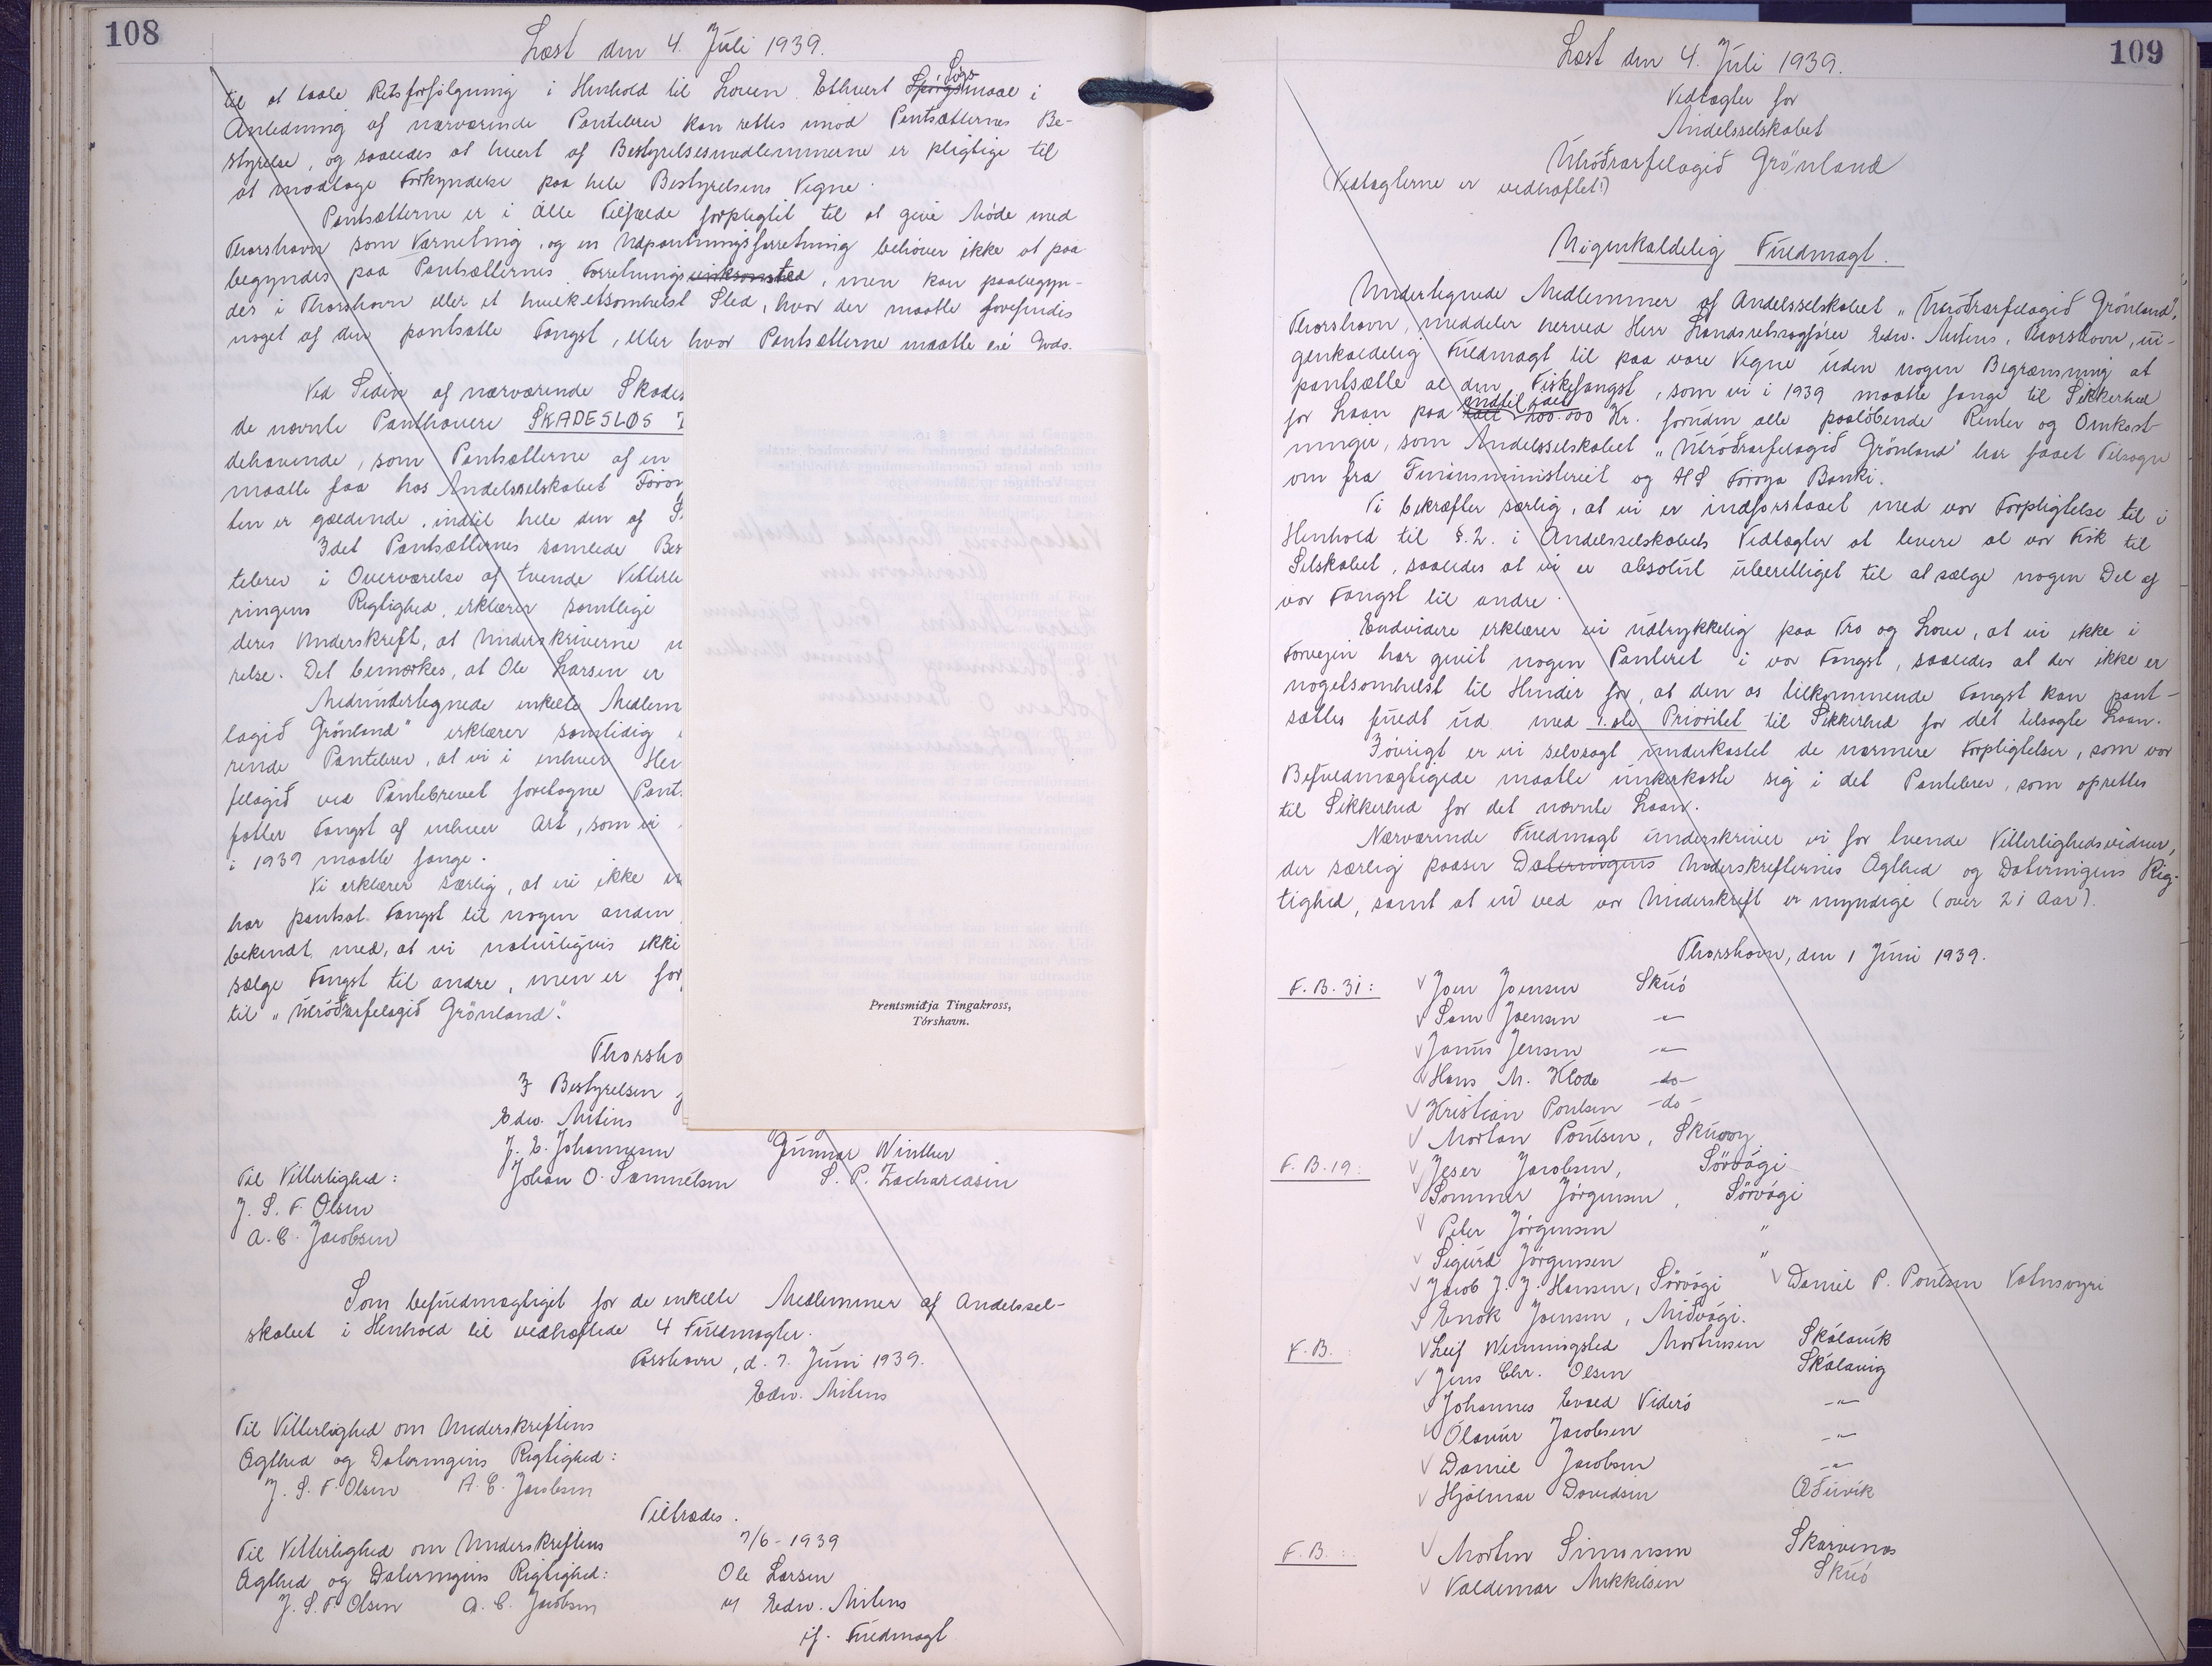 108
Læst den 4. Juli 1939.
til at taale Retsforfølgning i Henhold til Loven. Ethvert Spörgsmaal Søgsmaal i
Anledning af nærværende Pantebrev kan rettes mod Pantsætternes Be-
styrelse, og saaledes at hvert af Bestyrelsesmedlemmerne er pligtige til
at modtage Forkyndelse paa hele Bestyrelsens Vegne.
Pantsætterne er i alle Tilfælde forpligtet til at give Möde med
Thorshavn som Værneting, og en Udpantningsforretning behöver ikke at paa
begyndes paa Pantsætternes Forretnings, men kan paabegyn-
des i Thorshavn eller et hvilketsomhelst Sted, hvor der maatte forefindes
noget af den pantsatte Fangst, eller hvor Pantsætterne maatte eje Gods.
Ved Siden af nærværende Skades
de nævnte Panthavere SKADESLØS
dehavende, som Pantsætterne af en
maatte faa hos Andelsselskabet Föroy
ten er gældende, indtil hele den af
Idet Pantsætternes samlede Bes
tebrev i Overværelse af tvende Vitterli
ringens Rigtighed, erklærer samtlige
deres Underskrift, at Underskriverne u
relse. Det bemærkes, at Ole Larsen er
Medundertegnede enkelte Medlem
lagið Grönland" erklærer samtidig
rende Pantebrev, at vi i enhver Hen
felagið ved Pantebrevet foretagne Pant.
fatter Fangst af enhver Art, som vi
i 1939 maatte fange.
Vi erklærer særlig, at vi ikke
har pantsat Fangst til nogen anden
bekendt med, at vi naturligvis ikke
sælge Fangst til andre, men er for
til „Útróðrarfelagið Grönland".
Thorsha
F Bestyrelsen
Edw. Mitens
J. E. Johannesen Gunnar Winther
Til Vitterlighed: Johan O. Samuelsen S. P. Zachariasen
J. S. F. Olsen
A. C. Jacobsen
Som befuldmægtiget for de enkelte Medlemmer af Andelssel-
skabet i Henhold til vedhæftede 4 Fuldmagter.
Torshavn, d. 7. Juni 1939.
Edw. Mitens
Til Vitterlighed om Underskriftens
Ægthed og Dateringens Rigtighed:
J. S. F. Olsen A. C. Jacobsen
Tiltrædes.
Til Vitterlighed om Underskriftens 7/6 - 1939
Ægthed og Dateringens Rigtighed: Ole Larsen
J. S. F. Olsen A. C. Jacobsen v/ Edw. Mitens
if. Fuldmagt
Prentsmiðja Tingakross,
Tórshavn.
109
Læst den 4. Juli 1939.
Vedtægter for
Andelsselskabet
Útróðrarfelagið Grönland
(Vedtægterne er vedhæftet!)
Uigenkaldelig Fuldmagt.
Undertegnede Medlemmer af Andelsselskabet „Útróðrarfelagið Grönland",
Thorshavn, meddeler herved Herr Landsretssagförer Edw. Mitens, Thorshavn, ui-
genkaldelig Fuldmagt til paa vore Vegne uden nogen Begrænsning at
pantsætte al den Fiskefangst, som vi i 1939 maatte fange til Sikkerhed
for Laan paa indtil ialt 200.000 Kr. foruden alle paalöbende Renter og Omkost-
ninger, som Andelsselskabet „Útróðrarfelagið Grönland" har faaet Tilsagn
om fra Finansministeriet og A/S Föroya Banki.
Vi bekræfter særlig, at vi er indforstaaet med vor Forpligtelse til i
Henhold til §. 2. i Andelsselskabets Vedtægter at levere al vor Fisk til
Selskabet, saaledes at vi er absolut uberettiget til at sælge nogen Del af
vor Fangst til andre.
Endvidere erklærer vi udtrykkelig paa Tro og Love, at vi ikke i
Forvejen har givet nogen Panteret i vor Fangst, saaledes at der ikke er
nogetsomhelst til Hinder for, at den os tilkommende Fangst kan pant-
sættes fuldt ud med 1.ste Prioritet til Sikkerhed for det tilsagte Laan.
Iövrigt er vi selvsagt underkastet de nærmere Forpligtelser, som vor
Befuldmægtigede maatte underkaste sig i det Pantebrev, som oprettes
til Sikkerhed for det nævnte Laan.
Nærværende Fuldmagt underskriver vi for tvende Vitterlighedsvidner,
der særlig paaser Dateringens Underskrifternes Ægthed og Dateringens Rig-
tighed, samt at vi ved vor Underskrift er myndige (over 21 Aar).
Thorshavn, den 1 Juni 1939.
F.B. 31: Joen Joensen Skúó
Sam Joensen -"-
Janus Jensen -"-
Hans M. Klode -do-
Kristian Poulsen -do-
Mortan Poulsen, Skúvoy
F.B. 19: Jeser Jacobsen, Sörvági
Sommer Jörgensen, Sörvági
Peter Jörgensen "
Sigurd Jörgensen "
Jacob J. J. Hansen, Sörvági Daniel P. Poulsen Vatnsoyri
Enok Joensen, Miðvági.
F.B. : Leif Wenningsted Mortensen Skálavik
Jens Chr. Olsen Skálavig
Johannes Evald Viderö -"-
Ólavur Jacobsen -"-
Daniel Jacobsen -"-
Hjálmar Davidsen Øðuvík
F.B. : Morten Simonsen Skarvenes
Valdemar Mikkelsen Skúó